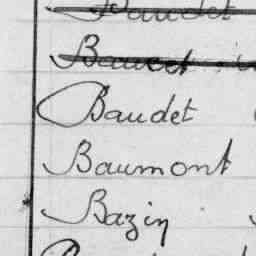 Baudet
Baudet
Baumont
Bazin